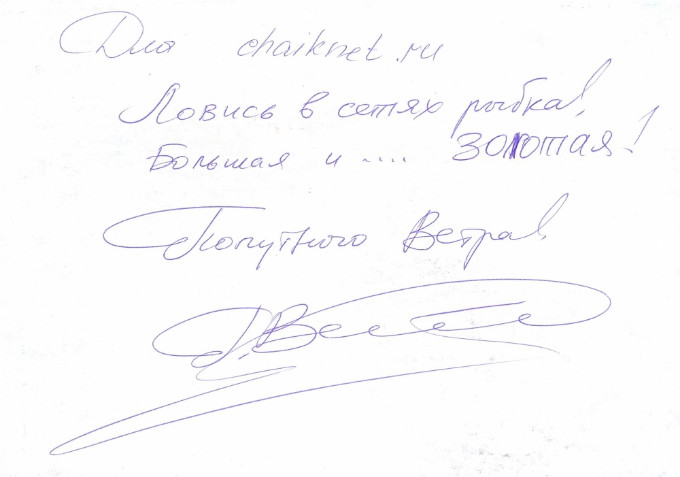 Для chaiknet.ru
Ловись в сетях рыбка!
Большая и .... ЗОЛОТАЯ!
Попутного Ветра!